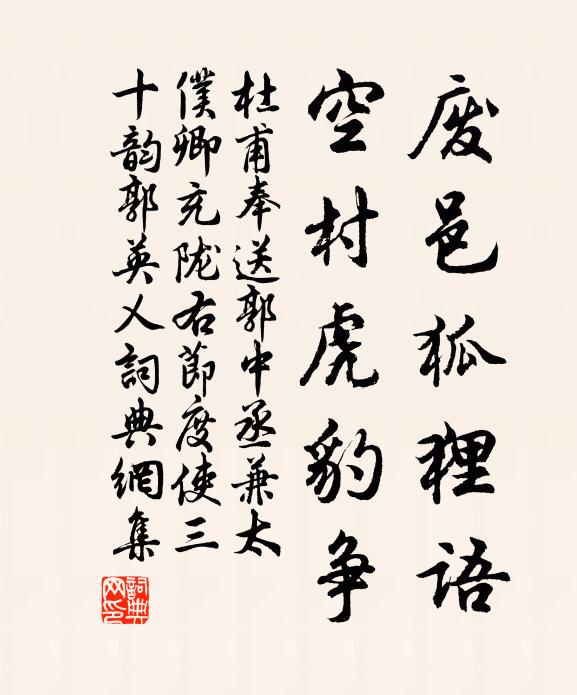 废邑狐狸语
空村虎豹争
杜甫奉送郭中丞兼太
僕卿充陇右節度使三
十韵郭英乂詞典網集
詞典
网印